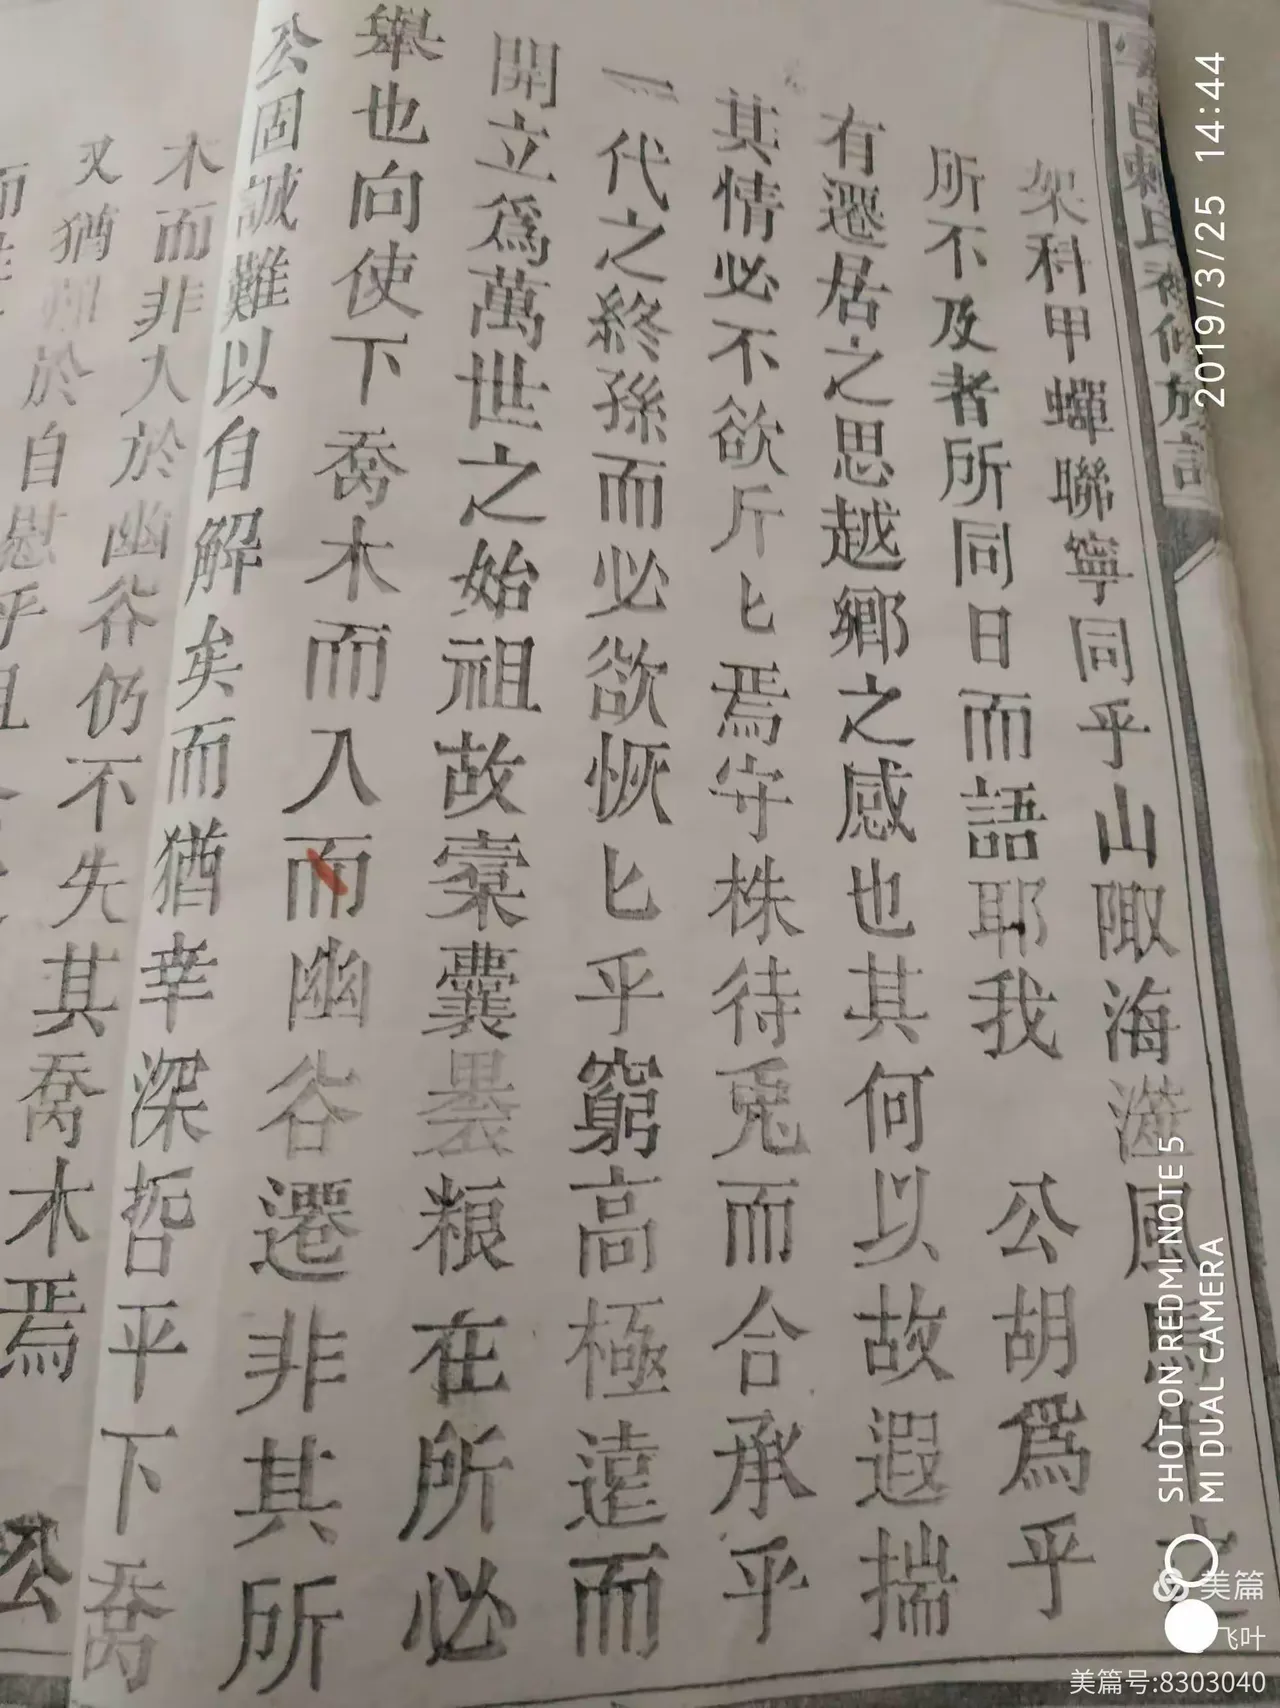 架科甲蟬聯寧同乎山陬海濱風馬牛之
所不及者所同日而語耶我 公胡爲乎
有遷居之思越鄉之感也其何以故遐揣
其情必不欲斤匕焉守株待兎而合承乎
一代之終孫而必欲恢匕乎窮高極遠而
開立爲萬世之始祖故橐囊裹粮在所必
舉也向使下喬木而入而幽谷遷非其所
公固誠難以自解矣而猶幸深哲乎下喬
木而非入於幽谷仍不失其喬木焉 公
又猶於自慰乎
2019/3/25 14:44
SHOT ON REDMI NOTE 5
MI DUAL CAMERA
美篇
飞叶
美篇号:8303040